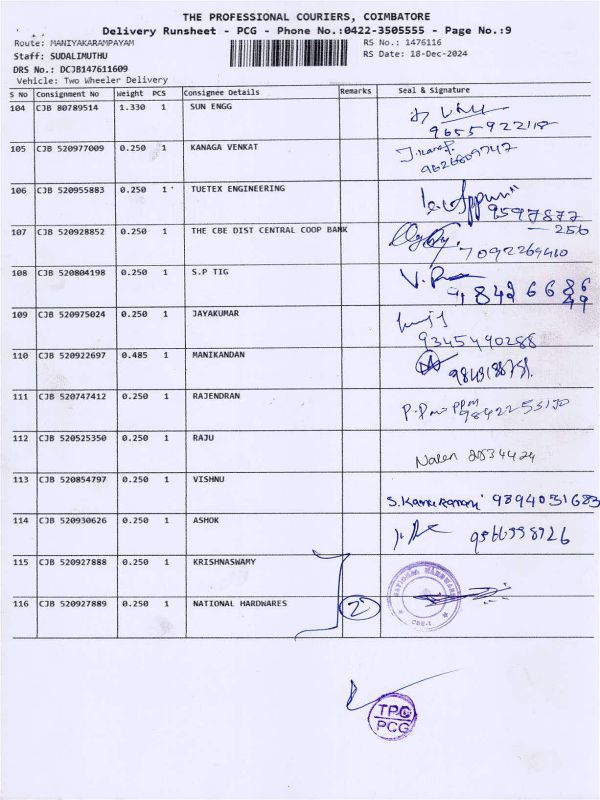 THE PROFESSIONAL COURIERS, COIMBATORE
Delivery Runsheet - PCG - Phone No.:0422-3505555 - Page No.:9
Route: MANIYAKARAMPAYAM RS No.: 1476116
Staff: SUDALIMUTHU RS Date: 18-Dec-2024
DRS No.: DCJB147611609
Vehicle: Two Wheeler Delivery
S No Consignment No Weight PCS Consignee Details Remarks Seal & Signature
104 CJB 80789514 1.330 1 SUN ENGG
9655922118
105 CJB 520977009 0.250 1 KANAGA VENKAT
106 CJB 520955883 0.250 1 TUETEX ENGINEERING
9597877
256
107 CJB 520928852 0.250 1 THE CBE DIST CENTRAL COOP BANK
7092269410
108 CJB 520804198 0.250 1 S.P TIG
109 CJB 520975024 0.250 1 JAYAKUMAR
9345490288
110 CJB 520922697 0.485 1 MANIKANDAN
111 CJB 520747412 0.250 1 RAJENDRAN
112 CJB 520525350 0.250 1 RAJU
Naren
113 CJB 520854797 0.250 1 VISHNU
9894051683
114 CJB 520930626 0.250 1 ASHOK
115 CJB 520927888 0.250 1 KRISHNASWAMY
116 CJB 520927889 0.250 1 NATIONAL HARDWARES 2
NATIONAL HARDWARES
CBE-1
TPC
PCG